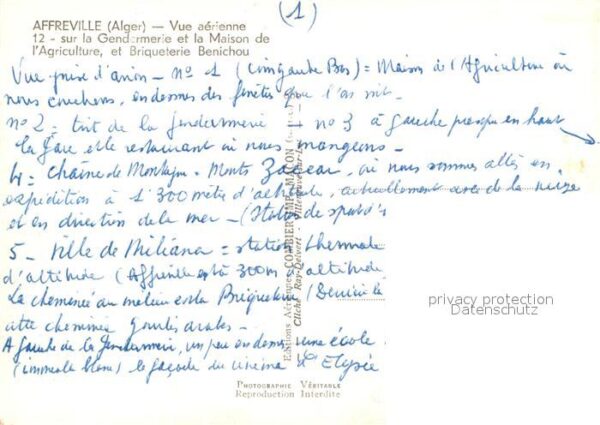 (1)
AFFREVILLE (Alger) — Vue aérienne
12 - sur la Gendarmerie et la Maison de
l'Agriculture, et Briqueterie Benichou
Vue prise d'avion - N° 1 (Coin gauche Bas) = Maison de l'Agriculture où
nous couchons, en dessus des fenêtres que l'on voit -
N° 2 - toit de la Gendarmerie - n° 3 à gauche presque en haut
la gare et le restaurant où nous mangeons -
4 = Chaîne de Montagne - Monts Zaccar, où nous sommes allés en
expédition à 1 300 mètres d'altitude, actuellement avec de la neige
et en direction de la mer - (Station de
5 - Ville de Miliana = station thermale
d'altitude (Affreville est à 300m d'altitude
La cheminée au milieu est la Briqueterie (
cette cheminée
A gauche de la Gendarmerie, un peu en dessus une école
(immeuble blanc) la façade du cinéma l'Elysée
Editions Aériennes COMBIER IMP. MACON
Cliché Ray-Delvert - Villeneuve-sur-L
PHOTOGRAPHIE VÉRITABLE
Reproduction Interdite
privacy protection
Datenschutz